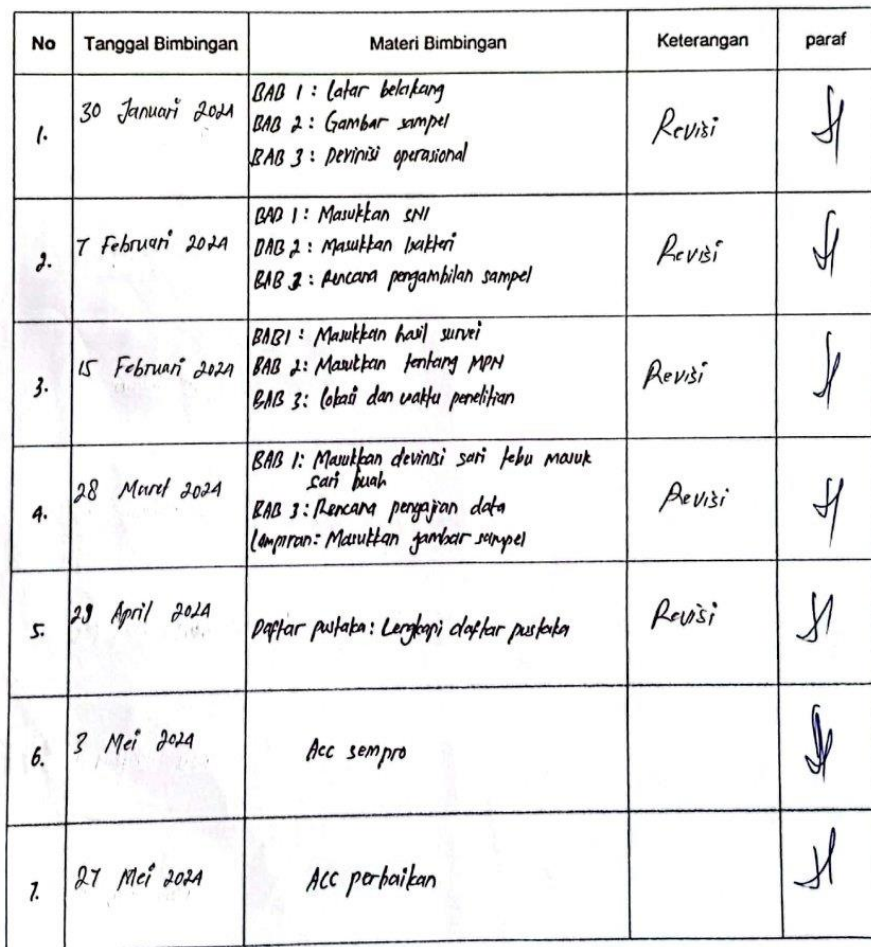 No Tanggal Bimbingan Materi Bimbingan Keterangan paraf
1. 30 Januari 2024 BAB 1 : Latar belakang
BAB 2 : Gambar sampel
BAB 3 : Devinisi operasional
Revisi
2. 7 Februari 2024 BAB 1 : Masukkan SNI
BAB 2 : Masukkan bakteri
BAB 3 : Rencana pengambilan sampel
Revisi
3. 15 Februari 2024 BAB 1 : Masukkan hasil survei
BAB 2 : Masukkan tentang MPN
BAB 3 : lokasi dan waktu penelitian
Revisi
4. 28 Maret 2024 BAB 1 : Masukkan devinisi sari tebu masuk
sari buah
BAB 3 : Rencana pengajian data
Lampiran : Masukkan gambar sampel
Revisi
5. 29 April 2024 Daftar pustaka : Lengkapi daftar pustaka Revisi
6. 3 Mei 2024 Acc sempro
7. 27 Mei 2024 Acc perbaikan